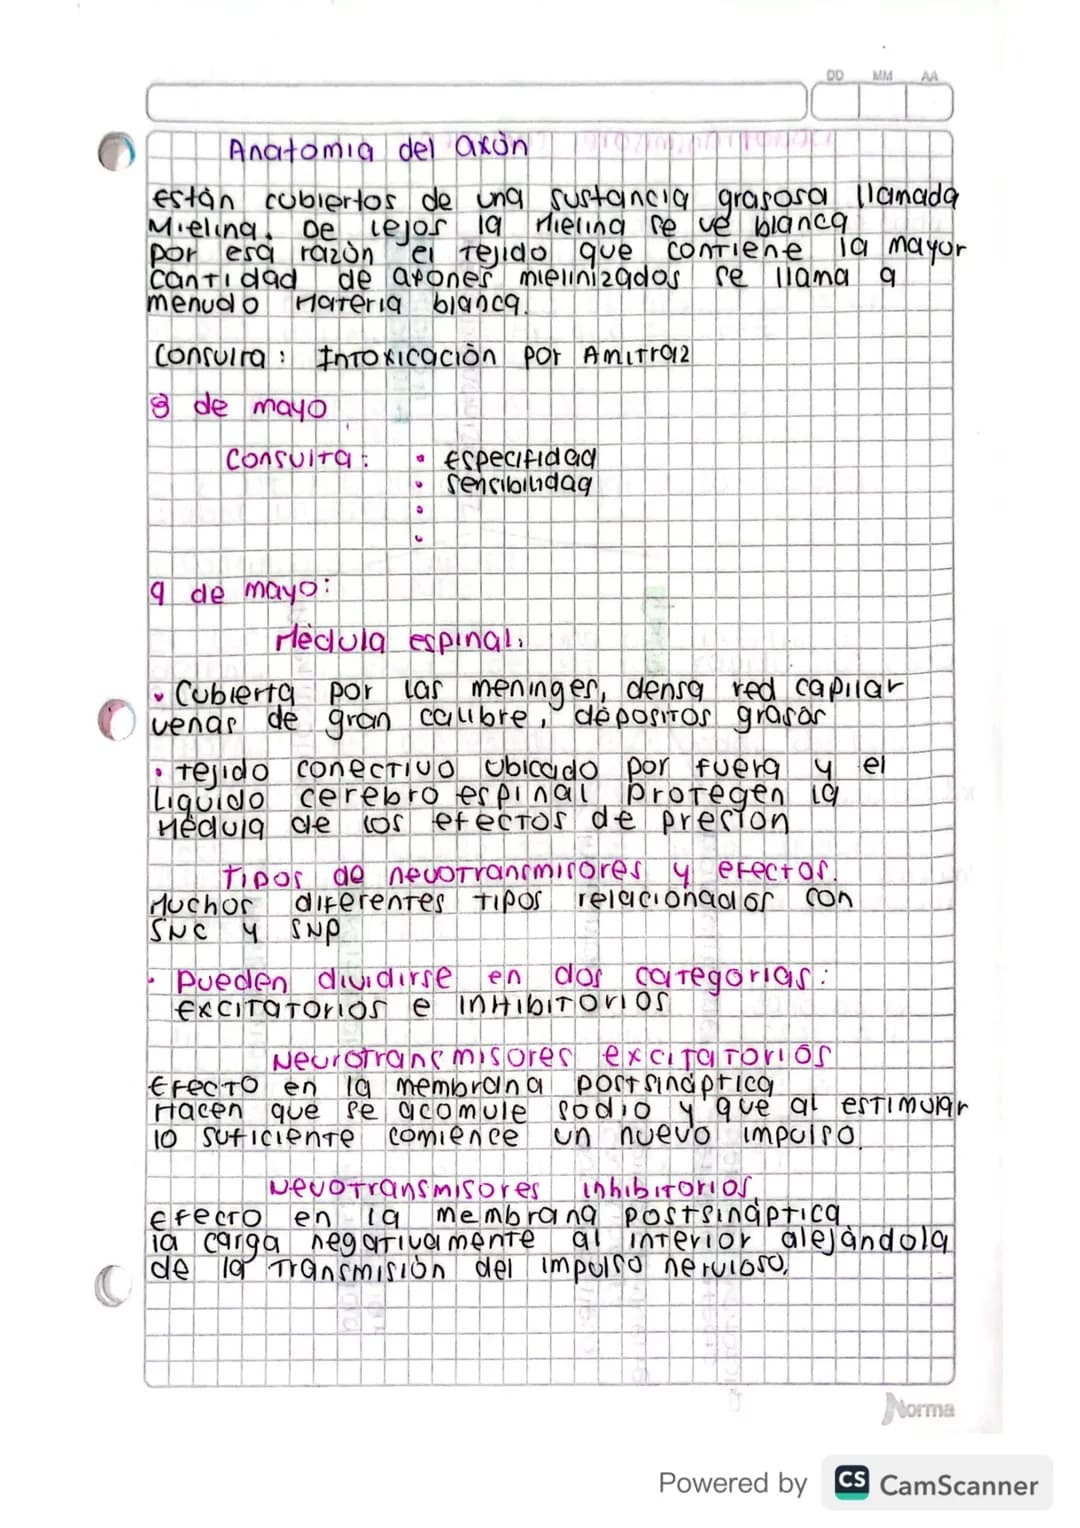 DD MM AA
Anatomia del axòn
están cubiertos de una sustancia grasosa llamada
Mielina. De lejos la Mielina se ve blanca
por esa razòn el tejido que contiene la mayor
cantidad de axones mielinizados se llama a
menudo Materia blanca.
Consulta: Intoxicaciòn por Amitraz
8 de mayo
Consulta: • Especifidad
• Sensibilidad
•
•
9 de mayo:
Mèdula espinal.
• Cubierta por las meninges, densa red capilar
venas de gran calibre, depositos grasos
• tejido conectivo ubicado por fuera y el
Liquido cerebro espinal protegen la
Mèdula de los efectos de presion
Tipos de neuotransmisores y efectos.
Muchos diferentes tipos relacionados con
SNC y SNP
• Pueden dividirse en dos categorias:
excitatorios e inhibitorios
Neurotransmisores excitatorios
Efecto en la membrana postsináptica
Hacen que se acomule sodio y que al estimular
lo suficiente comience un nuevo impulso.
Neuotransmisores inhibitorios
efecto en la membrana postsináptica
la carga negativamente al interior alejàndola
de la transmisiòn del impulso nervioso.
Norma
Powered by CS CamScanner